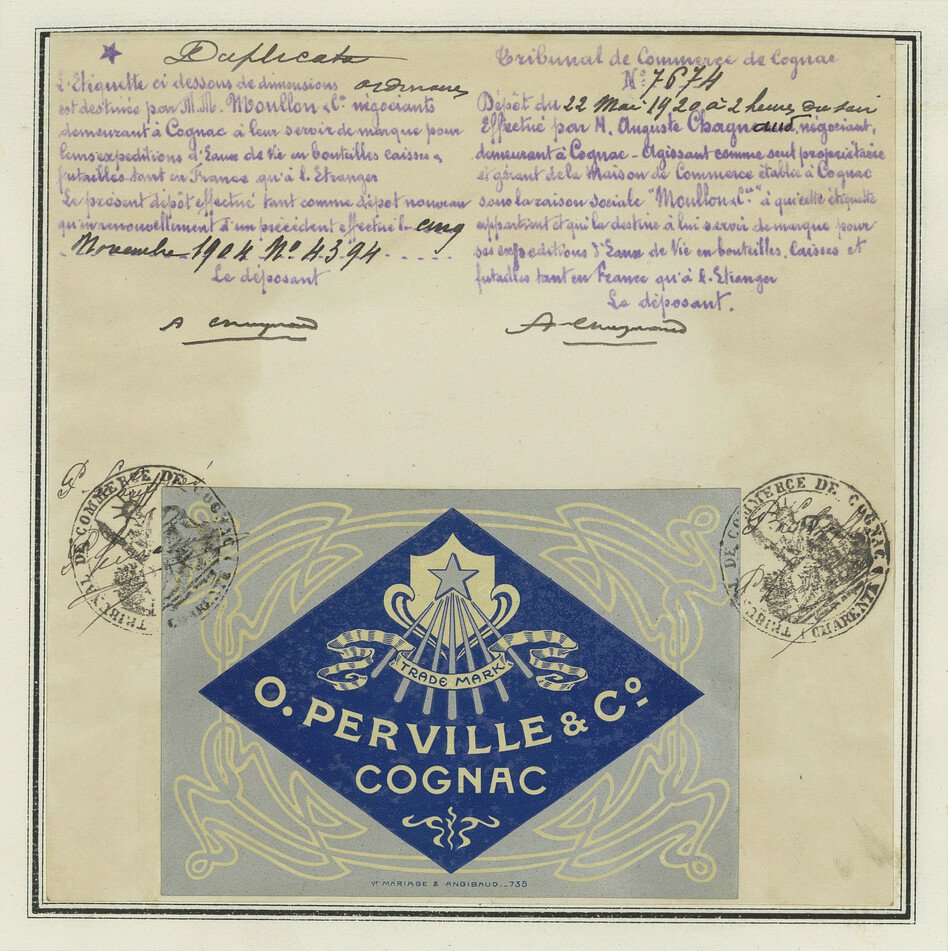 Duplicata
L'Etiquette ci dessous de dimensions ordinaires
est destinée par M.M. Moullon & Cie négociants
demeurant à Cognac à leur servir de marque pour
leurs expeditions d'Eaux de Vie en bouteilles caisses &
futailles tant en France qu'à l'Etranger
Le présent dépôt effectué tant comme dépot nouveau
qu'en renouvellement d'un précédent effectué le cinq
Novembre 1904 No 4394
Le déposant
A Chagnaud
Tribunal de Commerce de Cognac
No 7674
Dépôt du 22 Mai 1920 à 2 heures du soir
Effectué par M. Auguste Chagnaud, négociant,
demeurant à Cognac - Agissant comme seul propriétaire
et gérant de la Maison de Commerce établie à Cognac
sous la raison sociale "Moullon & Cie" à qui cette étiquette
appartient et qui la destine à lui servir de marque pour
ses expeditions d'Eaux de Vie en bouteilles, Caisses et
futailles tant en France qu'à l'Etranger
Le déposant.
A. Chagnaud
TRIBUNAL DE COMMERCE DE COGNAC
CHARENTE
TRIBUNAL DE COMMERCE DE COGNAC
CHARENTE
TRADE MARK
O. PERVILLE & Co
COGNAC
Vve MARIAGE & ANGIBAUD._735